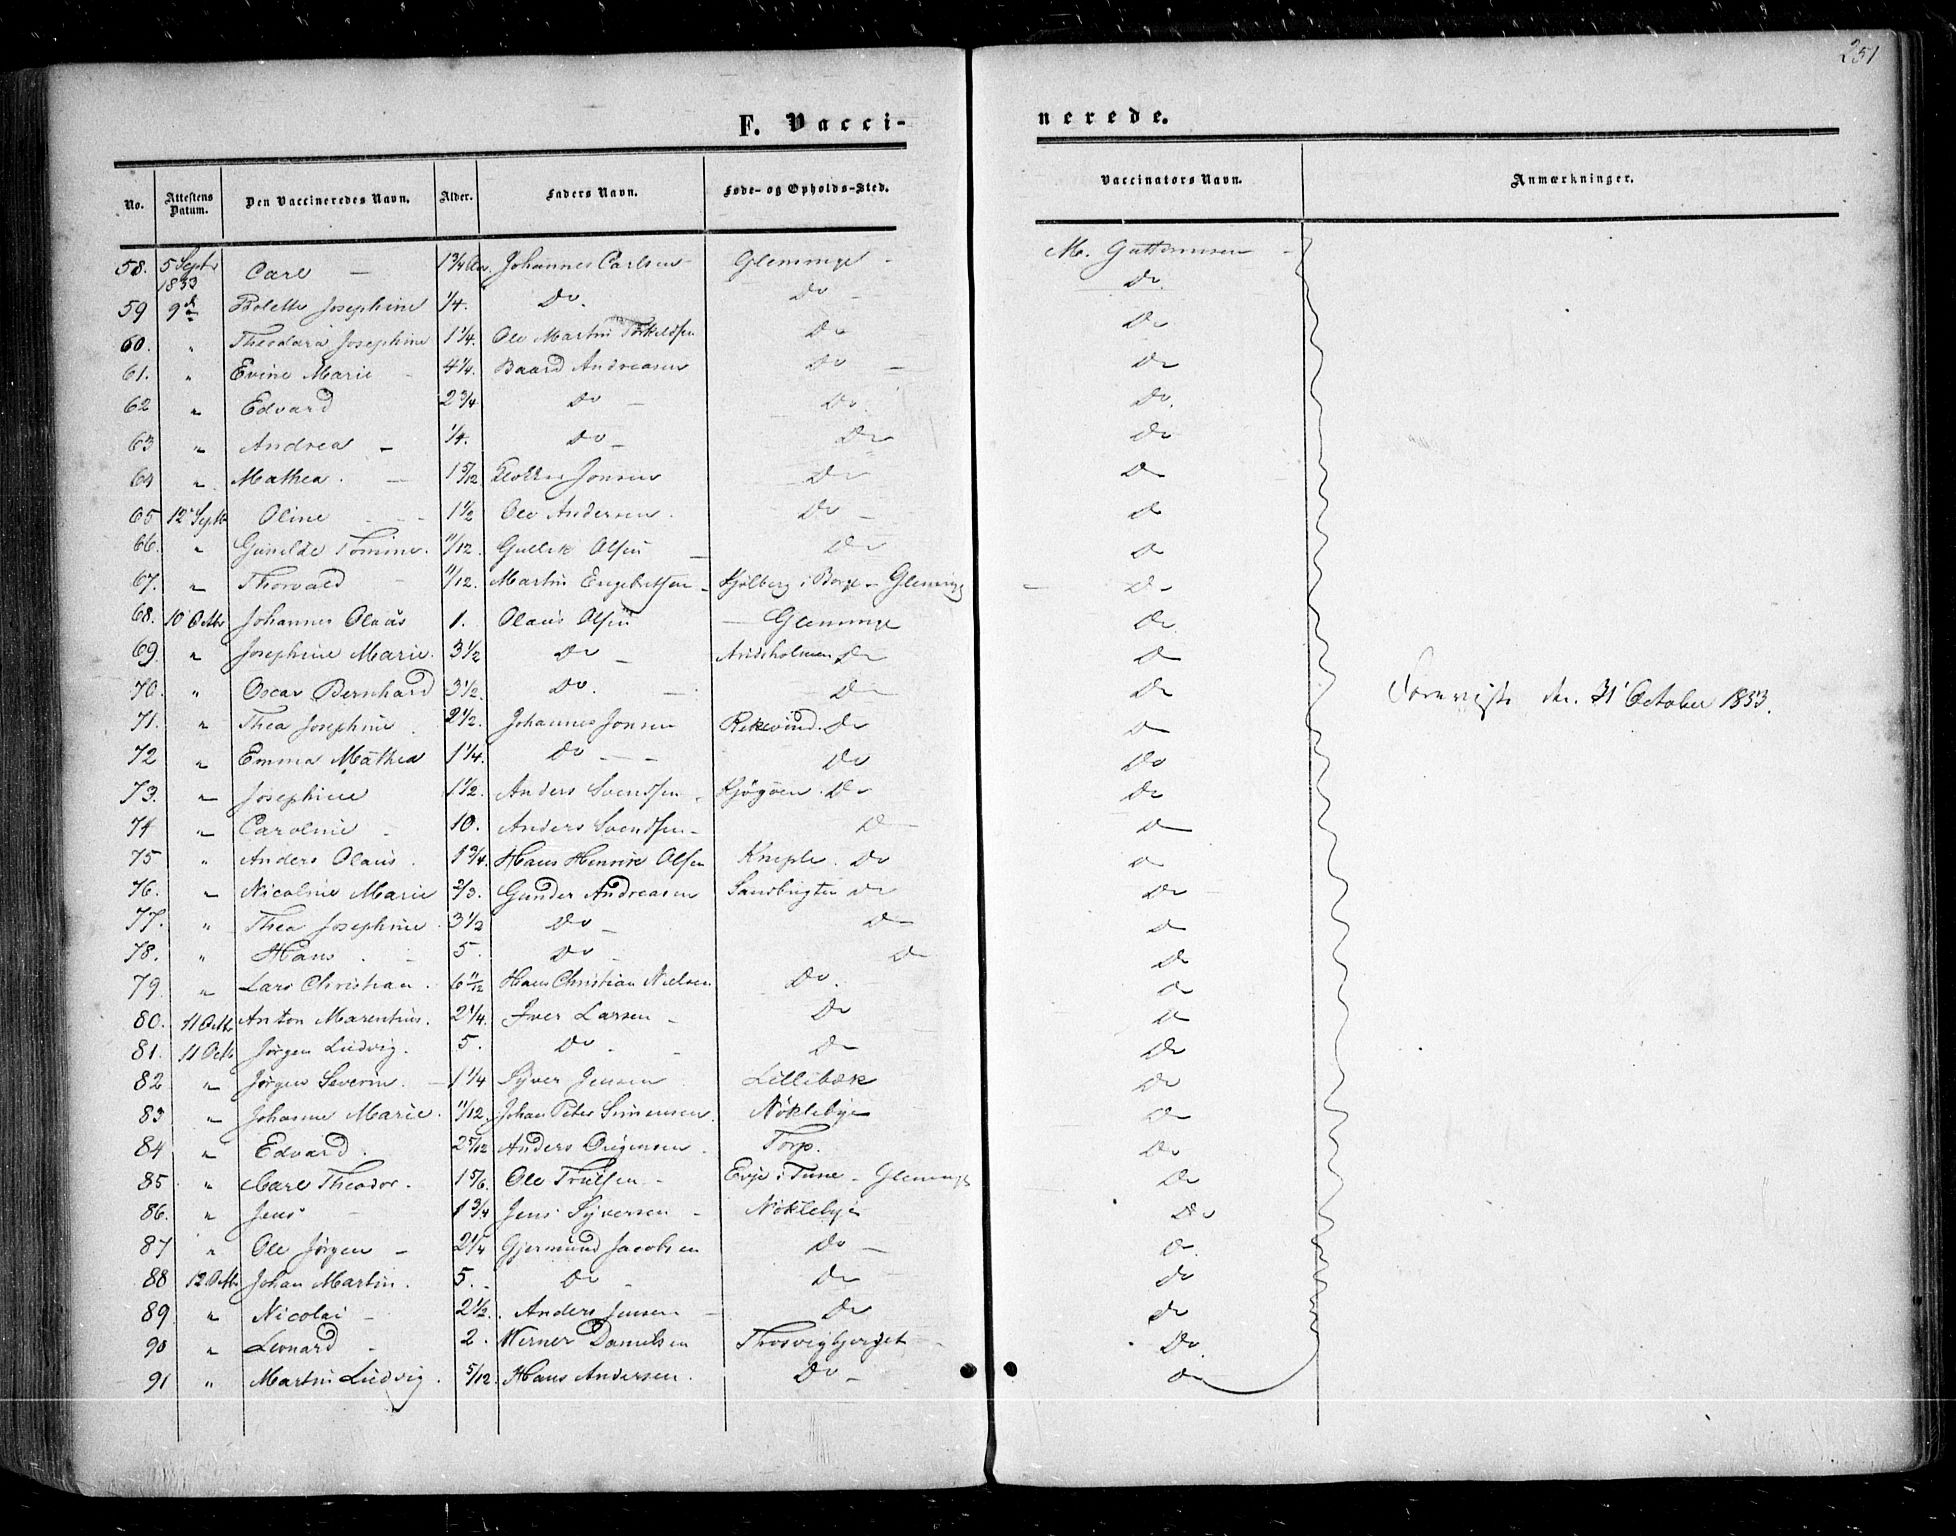 251
F. Vacci-nerede.
No. Attestens Datum. Den Vaccineredes Navn. Alder. Faders Navn. Føde- og Opholds-Sted. Vaccinators Navn. Anmærkninger.
58. 5 Septr 1853 Carl — 1 3/4 Aar. Johannes Carlsen - Glemminge - M. Guttormsen -
59 9de Bolette Josephine 1/4. Do. Do - Do.
60. " Theodora Josephine 1 1/4. Ole Martin Torkildsen Do Do
61. " Evine Marie - 4 1/4. Baard Andreasen Do - Do
62 " Edvard 2 3/4 Do - Do. Do.
63 " Andrea - 1/4. Do - Do Do
64 " Mathea. - 1 5/12 Jonsen Do Do
65 12 Septr Oline - - - 1 1/2 Ole Andersen. Do - Do
66. " Gunilde Tomine. 11/12. Gullik Olsen - Do Do
67. " Thorvald - 11/12. Martin Engebretsen - Kjølberg i Borge - Glemminge - Do
68. 10 Octbr Johannes Olaus 1. Olaus Olsen - Glemminge Do
69. " Josephine Marie. 3 1/2 Do - Arildsholmen Do Do
70. " Oscar Bernhard 3 1/2. Do. - Do Do Foreviist den 31 October 1853.
71. " Thea Josephine. 2 1/2. Johannes Jonsen Rekevind. Do Do
72 " Emma Mathea 1 1/4. Do - - Do Do
73. " Josephine 1 1/2. Anders Svendsen - Kjøgöen. Do Do
74 " Caroline - 10. Anders Svendsen - Do Do
75 " Anders Olaus. 1 3/4. Hans Henrik Olsen Kneple. Do Do
76. " Nicoline Marie 2/3. Gunder Andreasen Sandbugten Do Do
77. " Thea Josephine. 3 1/2 Do - Do Do
78. " Hans. - 5. Do - Do Do
79. " Lars Christian. 6 11/12 Hans Christian Nielsen Do. Do
80. 11 Octbr Anton Marentius. 2 1/4. Iver Larsen - Do Do
81. 11 Octb Jørgen Ludvig. 5. Do. - Do Do
82 " Jørgen Severin. - 1 1/4 Syver Jensen Lillibæk Do
83 " Johanne Marie. 11/12. Johan Peter Simensen. Nøklebye Do
84 " Edvard. 2 5/12 Anders Jörgensen. Torp. Do
85 " Carl Theodor. 1 5/6. Ole Truلsen - Evje i Tune - Glemminge Do
86. " Jens - 1 3/4 Jens Syversen - Nøklebye Do
87 " Ole Jørgen - 2 1/4 Gjermund Jacobsen Do - Do.
88 12 Octbr Johan Martin. 5. - Do - Do Do
89. " Nicolai - 2 1/2. Anders Jensen - Do Do
90 " Leonard - 2. Werner Danielsen Thorsvigbjerget - Do.
91 " Martin Ludvig. 5/12. Hans Andersen. Do - Do